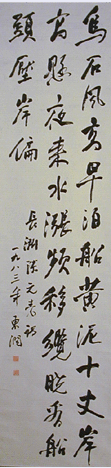 烏石風高早泊船黃泥十丈岸
高懸夜来水漲頻移纜晓看船
頭壓岸偏
長湖 元
一九八三年東潤